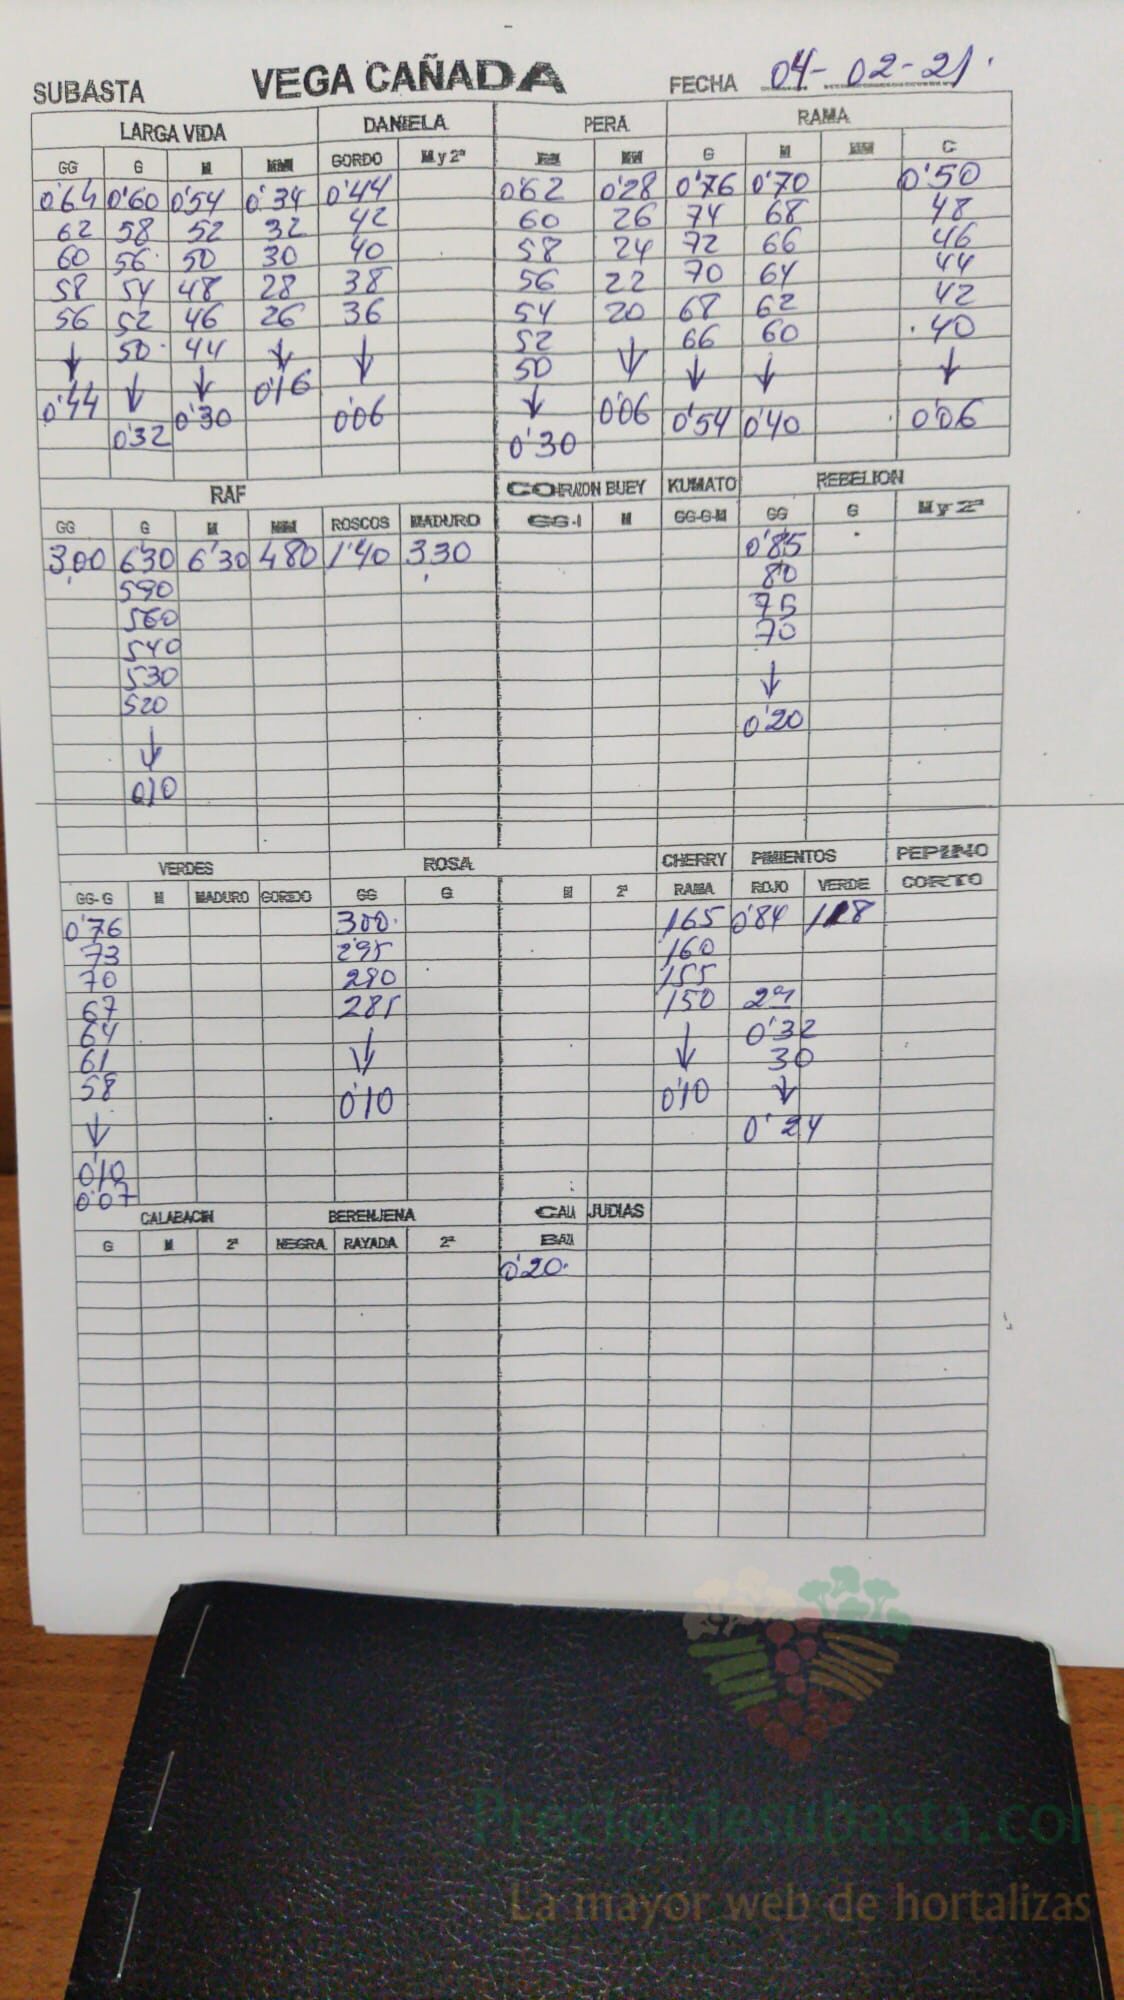 SUBASTA VEGA CAÑADA FECHA 04-02-21.
LARGA VIDA DANIELA PERA RAMA
GG G M MM GORDO M y 2ª MM G M MM C
0'64 0'60 0'54 0'34 0'44 0'62 0'28 0'76 0'70 0'50
62 58 52 32 42 60 26 74 68 48
60 56 50 30 40 58 24 72 66 46
58 54 48 28 38 56 22 70 64 44
56 52 46 26 36 54 20 68 62 42
↓ 50 44 ↓ ↓ 52 ↓ 66 60 40
0'44 ↓ ↓ 0'16 50 ↓ ↓ ↓
0'30 0'06 ↓ 0'06 0'54 0'40 0'06
0'32 0'30
RAF CORAZON BUEY KUMATO REBELION
GG G M MM ROSCOS MADURO GG-I M GG-G-M GG G M y 2ª
3,00 6'30 6'30 480 1'40 3.30 0'85
590 80
560 75
540 70
530 ↓
520 0'20
↓
0,10
VERDES ROSA CHERRY PIMIENTOS PEPINO
GG-G M MADURO GORDO GG G M 2ª RAMA ROJO VERDE CORTO
0'76 300 165 0'84 1'18
73 295 160
70 290 155
67 285 150 2ª
64 ↓ ↓ 0'32
61 30
58 0'10 0'10 ↓
↓ 0'24
0'10
0'07
CALABACIN BERENJENA CALA JUDIAS
G M 2ª NEGRA RAYADA 2ª
0'20
Preciosdesubasta.com
La mayor web de hortalizas